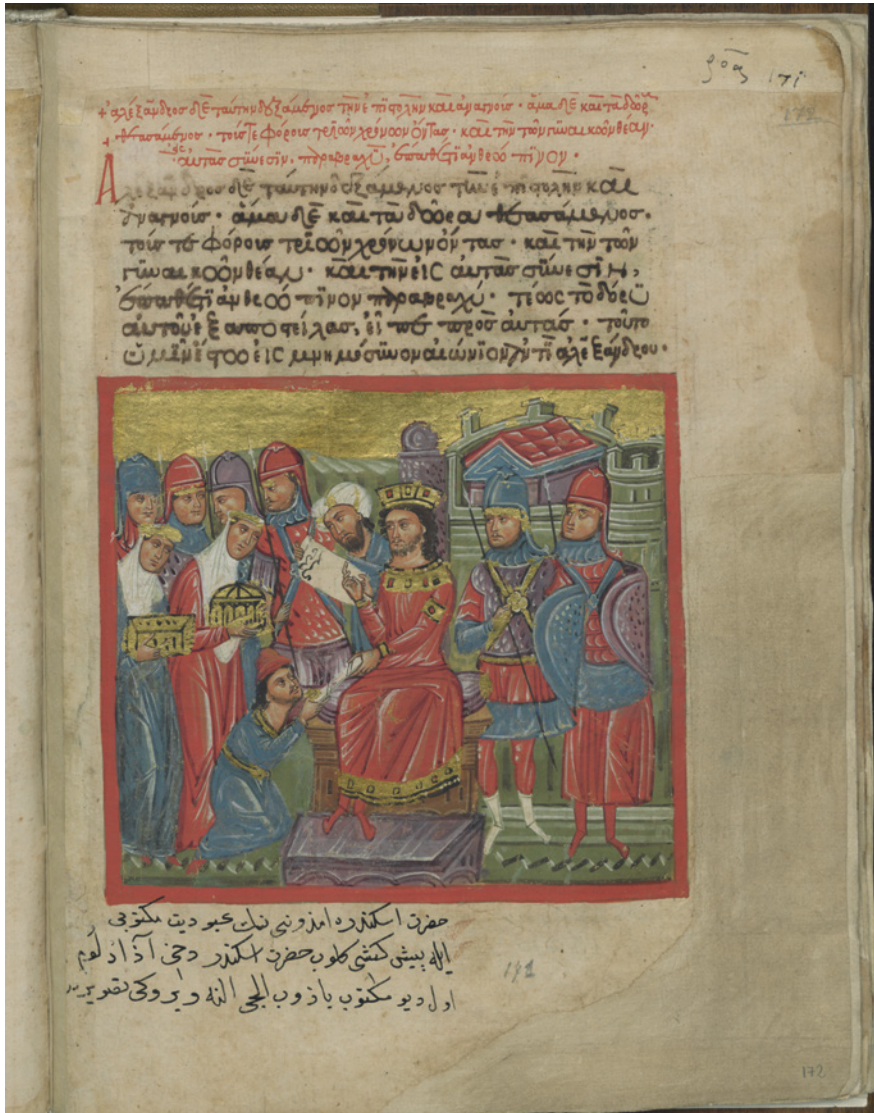 ροα 171
172
+ ἀλέξανδρος δὲ ταύτην δεξάμενος τὴν ἐπιστολὴν καὶ ἀναγνοίς · ἅμα δὲ καὶ τὰ δῶρ
θεασάμενος · τοῖς τε φόροις καὶ τὴν τῶν γυναικῶν θέαν ·
αὐτὰς σύνεσιν, παραβραχὺ, ἀνθρώπινον ·
Ἀλέξανδρος δὲ ταύτην δεξάμενος τὴν ἐπιστολὴν καὶ
ἀναγνοίς · ἅμα δὲ καὶ τὰ δῶρα θεασάμενος ·
τοῖς τε φόροις ὄντας · καὶ τὴν τῶν
γυναικῶν θέαν · καὶ τὴν εἰς αὐτὰς σύνεσιν,
ἀνθρώπινον παραβραχύ · τέως τὸ δόρυ
αὐτοῦ ἐξαποστείλας, εἶπε πρὸς αὐτάς · τοῦτο
ὑμῖν ἔστω εἰς μνημόσυνον αἰώνιον ἀντὶ ἀλεξάνδρου ·
حضرت اسكندره امذونى نك عبوديت مكتوبى
ايله پيش كشى كلوب حضرت اسكندر دخى آذاذ لوم
اول ديو مكتوب ياذوب الجى النه ويروكى تصويريدر
171
172